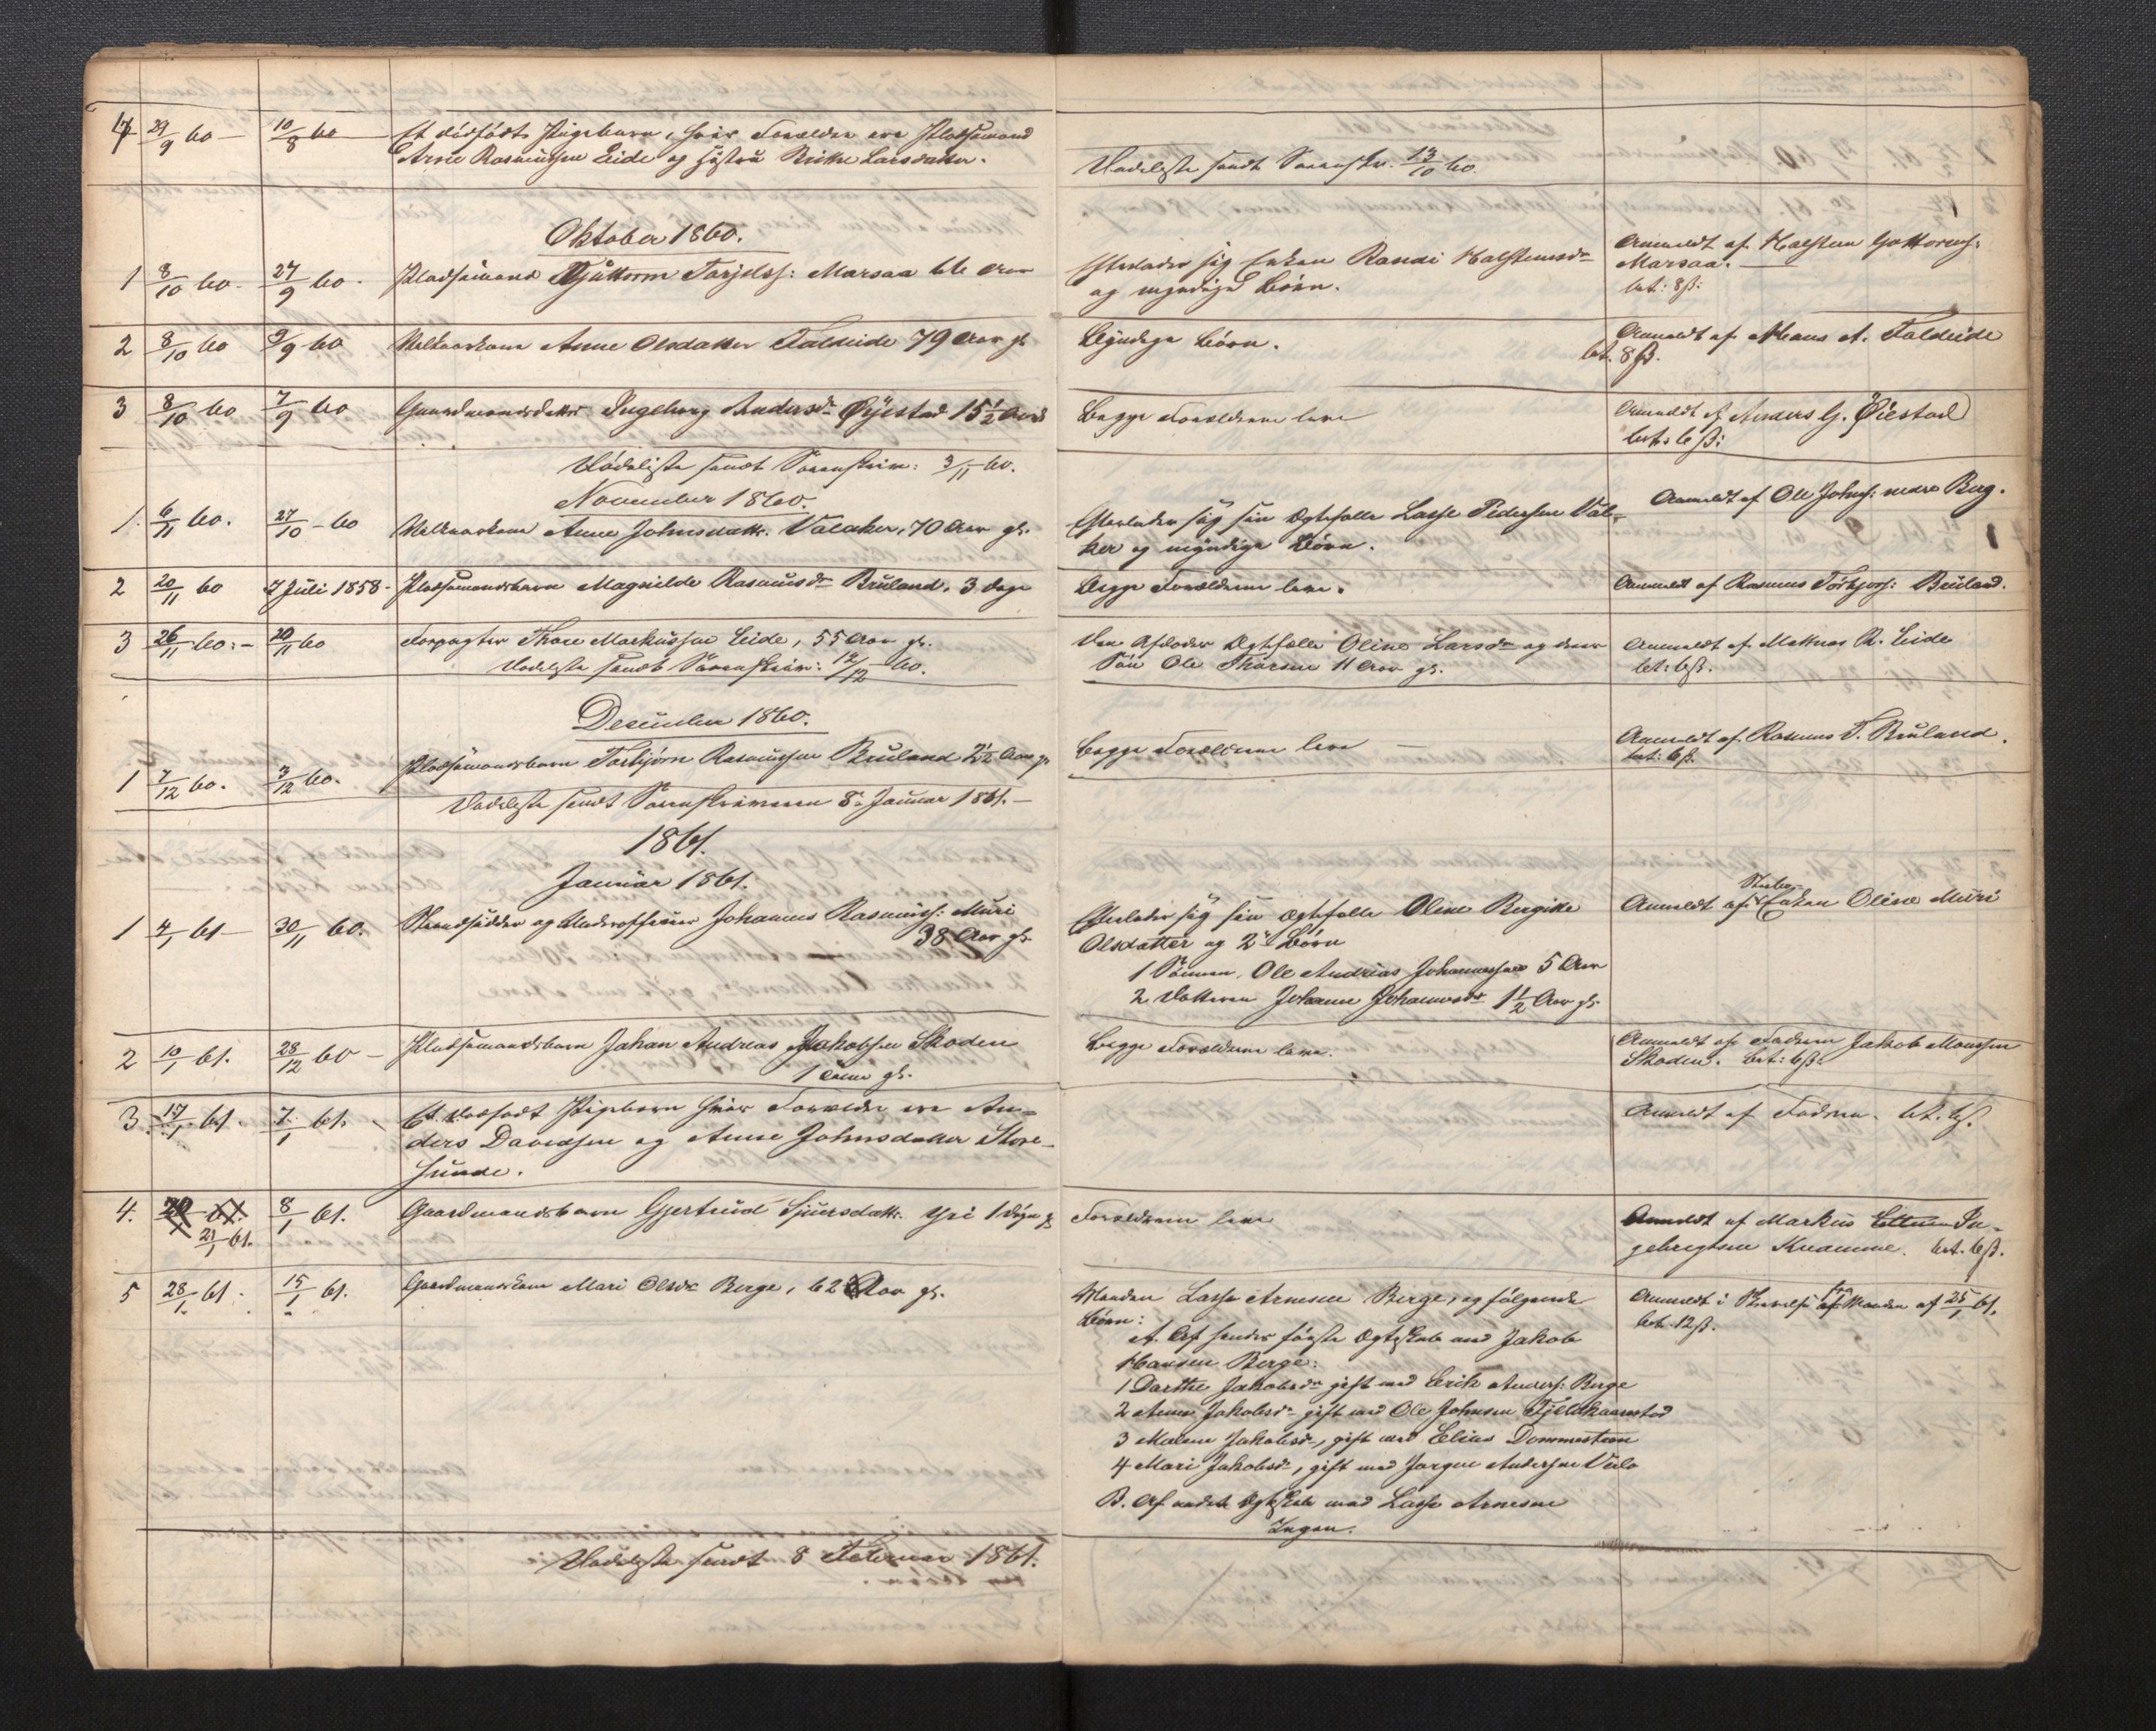 4 29/9 60 — 10/8 60 — Et dödfödt Pigebarn, hvis Forældre ere Pladsemand
Arne Rasmussen Eide og Hustru Larsdatter.
Dødsliste sendt Sorenskr. 13/10 60.
Oktober 1860.
1 8/10 60. 27/9 60. Pladsemand Guttorm Torjels: Marsaa 66 Aar
Efterlader sig Enken Randi Halsteinsdr
og myndige Børn.
Anmeldt af Halsten Guttorms:
Marsaa. —
bet: 8 ß:
2 8/10 60 9/9 60 Kelkaarkone Anne Olsdatter Taldeide 79 Aar gl.
Myndige Børn.
Anmeldt af Hans A. Taldeide
bet. 8 ß.
3 8/10 60 7/9 60 Gaardmandsdatter Ingeborg Andersdr Øyestad 15 1/2 Aar
Begge Forældrene leve
Anmeldt af Anders G. Øiestad
bet: 6 ß:
Dödsliste sendt Sorenskriv: 3/11 60.
November 1860.
1. 6/11 60. 27/10 - 60 Kelkaarkone Anne Johnsdattr. Valaker, 70 Aar gl.
Efterlader sig sin Ægtefælle Lasse Pedersen Val-
ker og myndige Børn.
Anmeldt af Ole Johns: nedre Berg.
2 20/11 60 7 Juli 1858 - Pladsemandsbarn Magnilde Rasmusdr Bruland. 3 Dage
Begge Forældrene leve.
Anmeldt af Rasmus Torbjors: Bruland.
3 26/11 60: - 20/11 60 Forpagter Thore Markussen Eide, 55 Aar gl.
Dødsliste sendt Sorenskriv: 12/12 60.
Den Afdødes Ægtefælle Oline Larsdr og deres
Søn Ole Thoresen 11 Aar gl.
Anmeldt af Mathias R. Eide
bet: 6 ß.
December 1860.
1 7/12 60. 3/12 60. Pladsemandsbarn Torbjørn Rasmussen Bruland 2 1/2 Aar gl
Begge Forældrene leve —
Anmeldt af Rasmus T. Bruland.
bet: 6 ß.
Dødsliste sendt Sorenskriveren 8. Januar 1861. —
1861.
Januar 1861.
1 4/1 61 — 30/11 60. Strandsidder og Underofficeer Johannes Rasmuss: Muri
38 Aar gl.
Efterlader sig sin Ægtefælle Oline Bergitte
Olsdatter og 2 Børn
1 Sønnen, Ole Andreas Johannessen 5 Aar
2 Datteren Johanne Johannesdr 1 1/2 Aar gl.
Anmeldt af Enken Oline Muri
2 10/1 61. 28/12 60 — Pladsemandsbarn Johan Andreas Jakobsen Skoden
1 gl.
Begge Forældrene leve.
Anmeldt af Faderen Jakob Monssen
Skoden. bet: 6 ß.
3. 17/1 61. 7/1 61. Et dødfødt Pigebarn hvis Forældre ere An-
ders Davidsen og Anne Johnsdatter Store-
hunde.
Anmeldt af Faderen. bet. 6 ß.
4. 21/1 61. 8/1 61. Gaardmandsbarn Gjertrud Sjursdattr. Yri 1 Døgn gl
Forældrene leve
Anmeldt af Markus In-
gebregtsen Kvamme. bet. 6 ß.
5 28/1 61. 15/1 61. Gaardmandskone Mari Olsdr Berge, 62 Aar gl.
Manden Lasse Arnesen Berge, og følgende
Børn:
A. Af hendes første Ægteskab med Jakob
Hansen Berge:
1 Dorthe Jakobsdr gift med Erik Anders: Berge
2 Anna Jakobsdr gift med Ole Johnsen Fjeldkaarstad
3 Malene Jakobsdr, gift med Elias Dommesteen
4 Mari Jakobsdr, gift med Jørgen Andersen
B. Af andet Ægteskab med Lasse Arnesen
Ingen.
Anmeldt i Skrivelse fra Manden af 25/1 61.
bet. 12 ß.
Dødsliste sendt 8 Februar 1861.